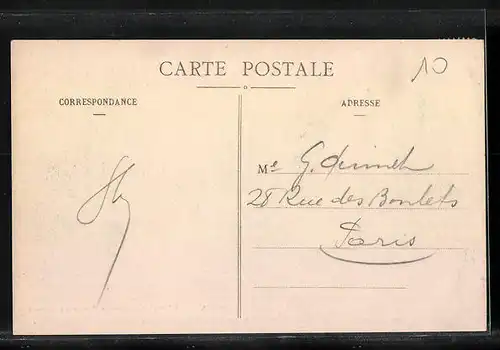 CARTE POSTALE
10
CORRESPONDANCE
ADRESSE
Me G.
28 Rue des Boulets
Paris